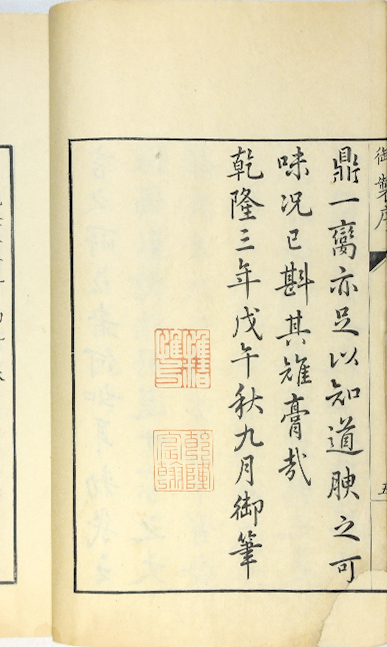 御製序
五
鼎一臠亦足以知道腴之可
味况已斟其雉膏哉
乾隆三年戊午秋九月御筆
惟精
惟一
乾隆
宸翰